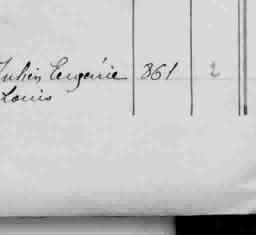 Julien Eugénie 861 2
Louis